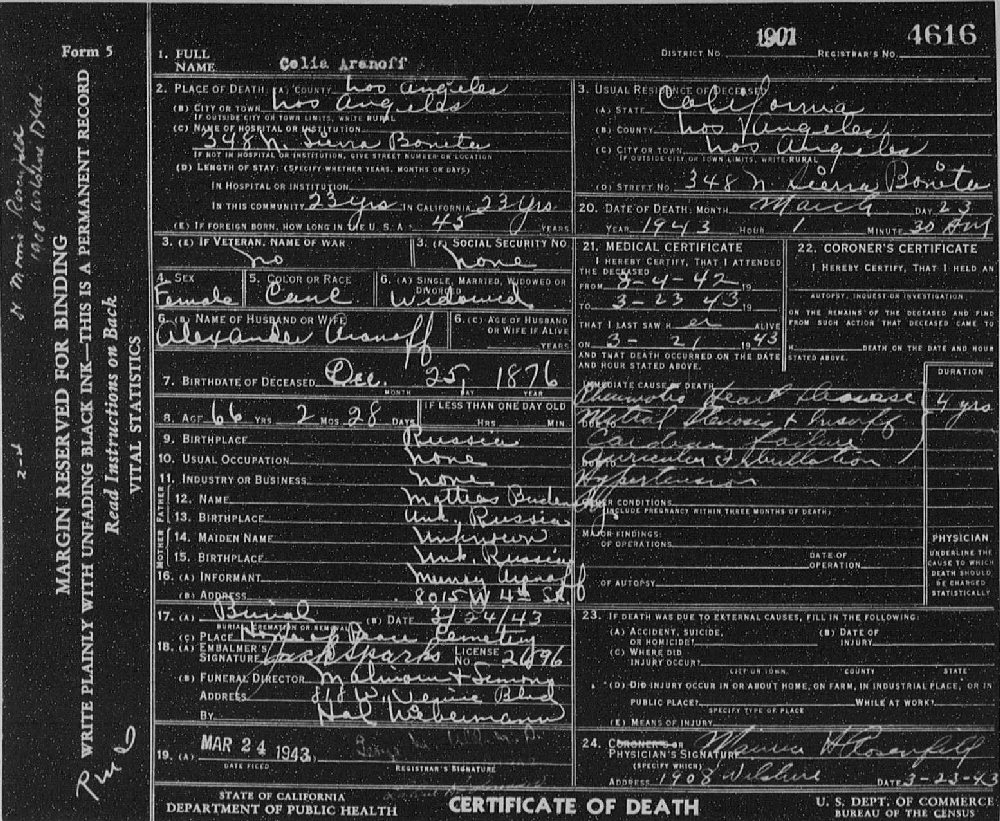 Form 5
1901
4616
DISTRICT NO.
REGISTRAR'S NO.
1. FULL NAME Celia Aranoff
2. PLACE OF DEATH: (A) COUNTY Los Angeles
(B) CITY OR TOWN Los Angeles
IF OUTSIDE CITY OR TOWN LIMITS, WRITE RURAL
(C) NAME OF HOSPITAL OR INSTITUTION
348 N. Sierra Bonita
IF NOT IN HOSPITAL OR INSTITUTION, GIVE STREET NUMBER OR LOCATION
(D) LENGTH OF STAY: (SPECIFY WHETHER YEARS, MONTHS OR DAYS)
IN HOSPITAL OR INSTITUTION
IN THIS COMMUNITY 23 yrs IN CALIFORNIA 23 yrs
(E) IF FOREIGN BORN, HOW LONG IN THE U. S. A.? 45 YEARS
3. USUAL RESIDENCE OF DECEASED
(A) STATE California
(B) COUNTY Los Angeles
(C) CITY OR TOWN Los Angeles
IF OUTSIDE CITY OR TOWN LIMITS, WRITE RURAL
(D) STREET NO. 348 N Sierra Bonita
20. DATE OF DEATH: MONTH March DAY 23
YEAR 1943 HOUR 1 MINUTE 30
3. (E) IF VETERAN, NAME OF WAR no
3. (F) SOCIAL SECURITY NO none
4. SEX Female
5. COLOR OR RACE Cauc
6. (A) SINGLE, MARRIED, WIDOWED OR DIVORCED Widowed
6. (B) NAME OF HUSBAND OR WIFE
Alexander Aranoff
6. (C) AGE OF HUSBAND OR WIFE IF ALIVE
YEARS
7. BIRTHDATE OF DECEASED Dec. 25, 1876
MONTH DAY YEAR
8. AGE 66 YRS 2 MOS 28 DAYS
IF LESS THAN ONE DAY OLD
HRS MIN
9. BIRTHPLACE Russia
10. USUAL OCCUPATION none
11. INDUSTRY OR BUSINESS none
FATHER
12. NAME Mattias
13. BIRTHPLACE Unk, Russia
MOTHER
14. MAIDEN NAME Unknown
15. BIRTHPLACE Unk, Russia
16. (A) INFORMANT Aranoff
(B) ADDRESS 8015 W 4th St.
17. (A) Burial (B) DATE 3/24/43
BURIAL, CREMATION OR REMOVAL
(C) PLACE Home of Peace Cemetery
18. (A) EMBALMER'S SIGNATURE Jack Sparks LICENSE NO. 2696
(B) FUNERAL DIRECTOR Malinow & Simons
ADDRESS 818 W. Venice Blvd
BY Hal
19. (A) MAR 24 1943
DATE FILED
REGISTRAR'S SIGNATURE
21. MEDICAL CERTIFICATE
I HEREBY CERTIFY, THAT I ATTENDED THE DECEASED
FROM 8-4-42
TO 3-23 43 19
THAT I LAST SAW H er ALIVE
ON 3- 21 1943
AND THAT DEATH OCCURRED ON THE DATE AND HOUR STATED ABOVE.
22. CORONER'S CERTIFICATE
I HEREBY CERTIFY, THAT I HELD AN
AUTOPSY, INQUEST OR INVESTIGATION
ON THE REMAINS OF THE DECEASED AND FIND FROM SUCH ACTION THAT DECEASED CAME TO
H DEATH ON THE DATE AND HOUR STATED ABOVE.
DURATION
IMMEDIATE CAUSE OF DEATH
Rheumatic Heart Disease 4 yrs
DUE TO Mitral Stenosis & Insuff
Cardiac Failure
DUE TO Auricular Fibrillation
Hypertension
OTHER CONDITIONS
(INCLUDE PREGNANCY WITHIN THREE MONTHS OF DEATH)
MAJOR FINDINGS:
OF OPERATIONS
DATE OF OPERATION
OF AUTOPSY
PHYSICIAN
UNDERLINE THE CAUSE TO WHICH DEATH SHOULD BE CHARGED STATISTICALLY
23. IF DEATH WAS DUE TO EXTERNAL CAUSES, FILL IN THE FOLLOWING:
(A) ACCIDENT, SUICIDE, OR HOMICIDE?
(B) DATE OF INJURY
(C) WHERE DID INJURY OCCUR?
CITY OR TOWN COUNTY STATE
(D) DID INJURY OCCUR IN OR ABOUT HOME, ON FARM, IN INDUSTRIAL PLACE, OR IN
PUBLIC PLACE? WHILE AT WORK?
SPECIFY TYPE OF PLACE
(E) MEANS OF INJURY
24. CORONER'S OR PHYSICIAN'S SIGNATURE Maurice H Rosenfeld
(SPECIFY WHICH)
ADDRESS 1908 Wilshire DATE 3-23-43
STATE OF CALIFORNIA
DEPARTMENT OF PUBLIC HEALTH
CERTIFICATE OF DEATH
U. S. DEPT. OF COMMERCE
BUREAU OF THE CENSUS
MARGIN RESERVED FOR BINDING
WRITE PLAINLY WITH UNFADING BLACK INK—THIS IS A PERMANENT RECORD
Read Instructions on Back
VITAL STATISTICS
1908 Wilshire Blvd.